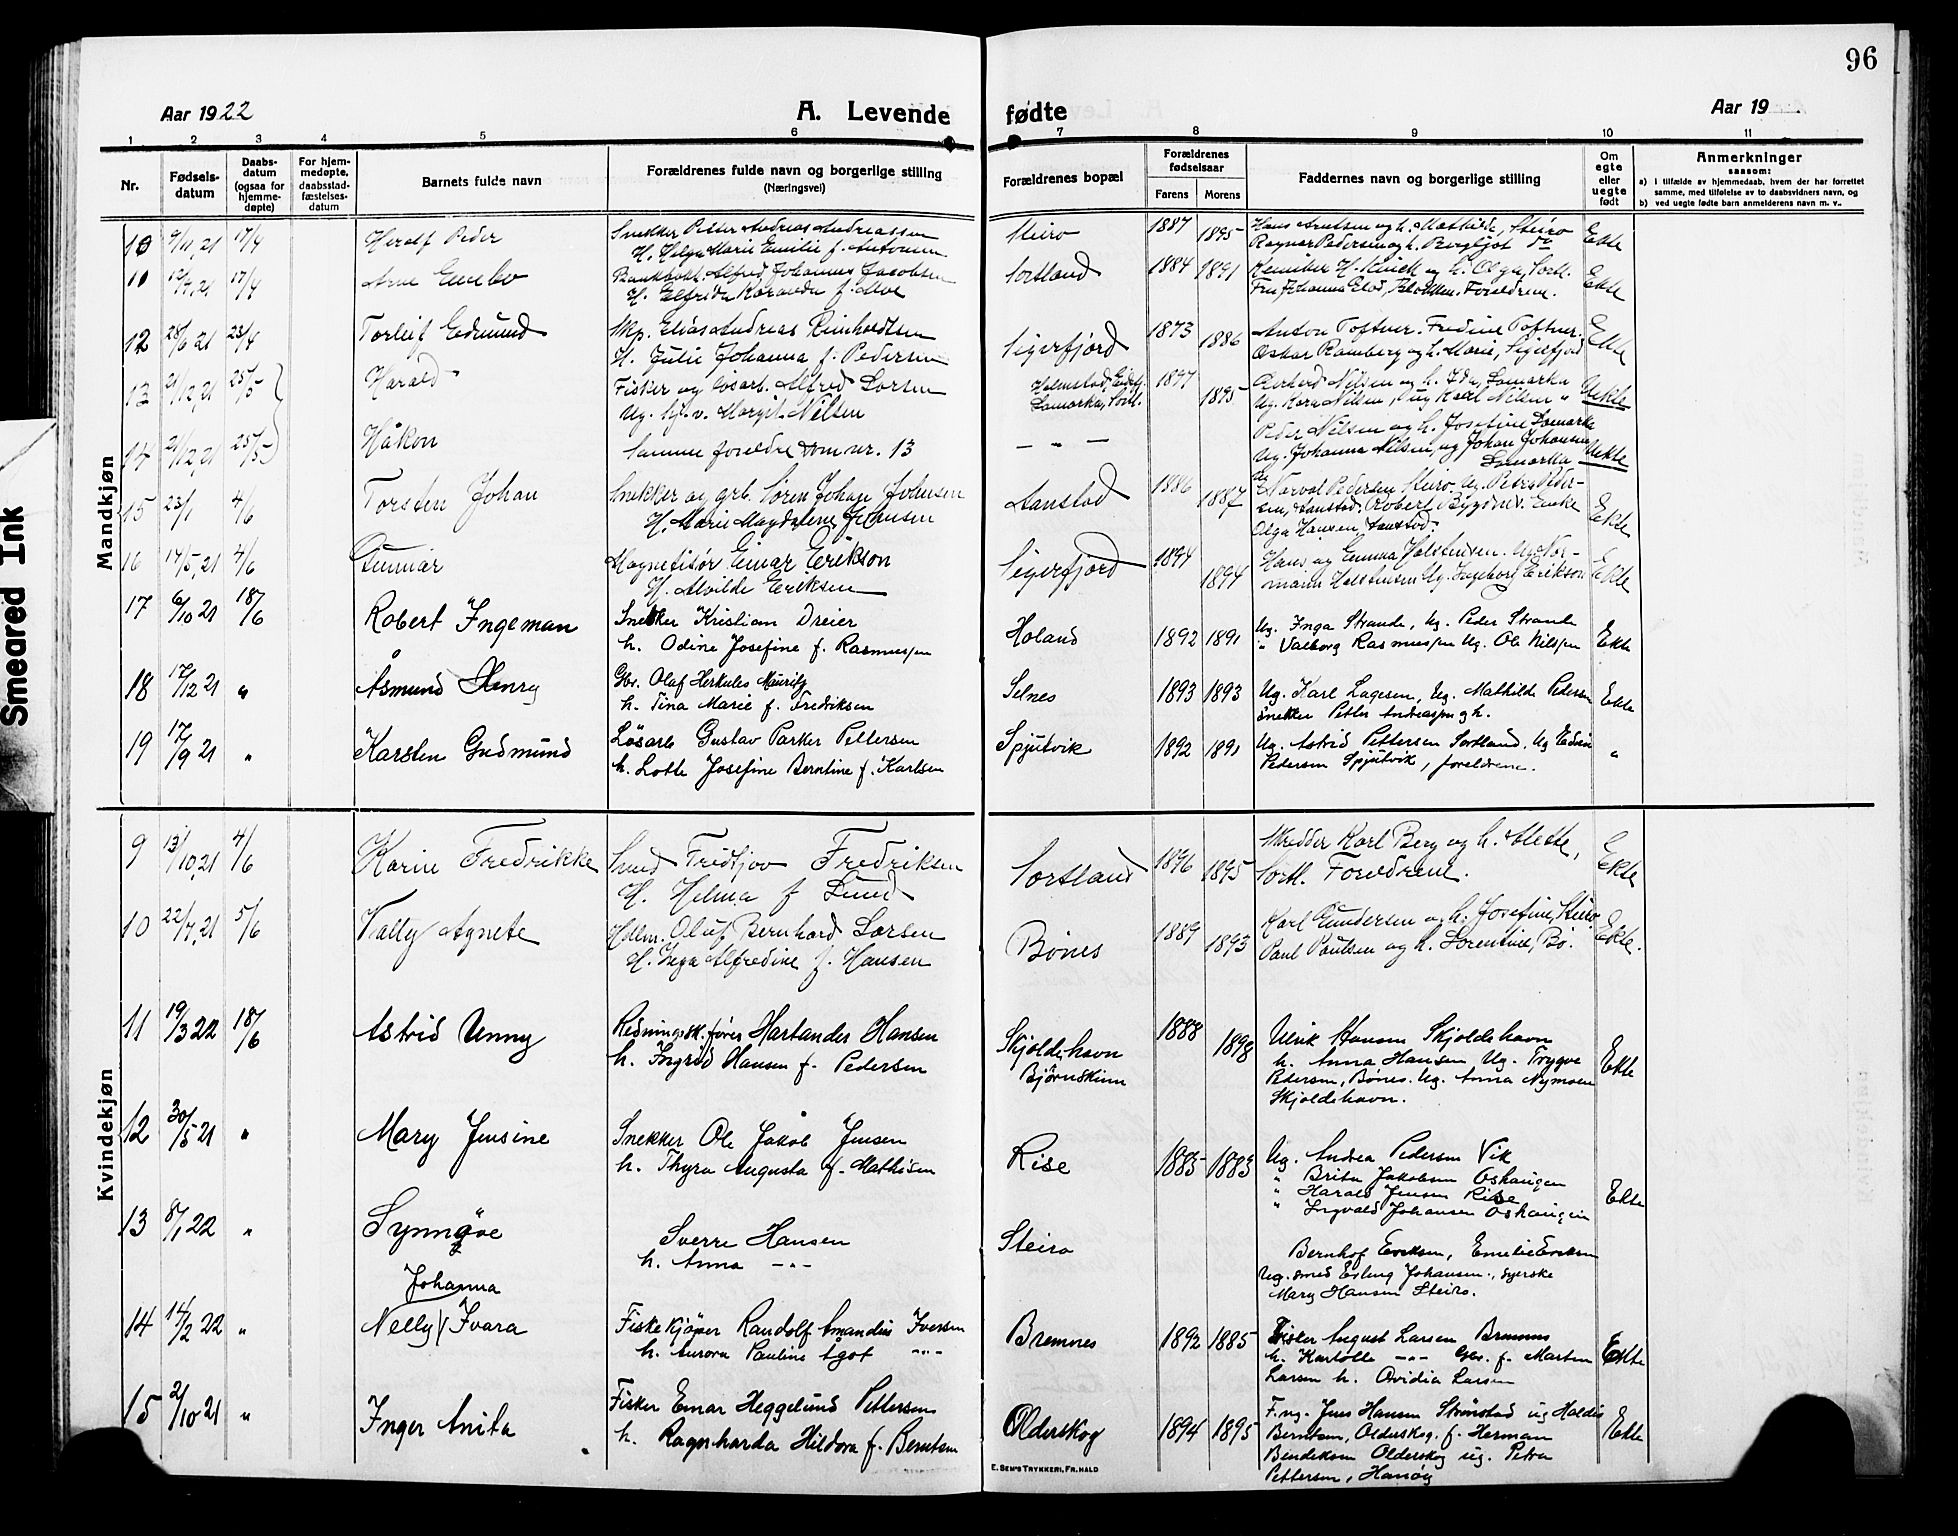 96
Aar 1922
A. Levende
fødte
Aar 19
1 2 3 4 5 6 7 8 9 10 11
Nr.
Fødsels-
datum
Daabs-
datum
(ogsaa for
hjemme-
døpte)
For hjem-
medøpte,
daabsstad-
fæstelses-
datum
Barnets fulde navn
Forældrenes fulde navn og borgerlige stilling
(Næringsvei)
Forældrenes bopæl
Forældrenes
fødselsaar
Farens Morens
Faddernes navn og borgerlige stilling
Om
egte
eller
uegte
født
Anmerkninger
saasom:
a) i tilfælde av hjemmedaab, hvem der har forrettet
samme, med tilføielse av to daabsvidners navn, og
b) ved uegte fødte barn anmelderens navn m. v..
Mandkjøn
10 9/11,21 17/4 Herolf Peder Snekker Peter Andreas Andreassen Steiro 1887 1895 Hans Arntsen og h. Mathilde, Steiro Ekte
H. Helga Marie Emilie f. Antonsen Ragnar Pedersen og h. Bergljot do
11 17/4 Arne Bankbokh. Alfred Johannes Jacobsen Sortland 1884 1891 Kemiker H. og h. Olga, Sortl. Ekte
H. Elfrida f. Moe Fru Johanna Foreldrene.
12 28/6 21 23/4 Torleif Edmund Skp. Elias Andreas Reinholdtsen Sigerfjord 1873 1886 Anton Toftner. Fredine Toftner. Ekte
H. Julie Johanna f. Pedersen Oskar Ramberg og h. Marie, Sigerfjord
13 21/12,21 25/5 Harald Fisker og løsarb. Alfred Larsen Holmstad, Eidsfj. 1897 1895 Gerhard Nilsen og h. Ida, Lamarka Uekte
Ug. hj. v. Margit Nilsen Lamarka, Sortl. Ug. Kara Nilsen, ug Karl Nilsen "
14 21/12,21 25/5 Håkon Samme foreldre som nr. 13 — " — Peder Nilsen og h. Josefine Lamarka Uekte
Ug. Johanna Nilsen, ug Johan Johansen
Lamarka
15 23/1 4/6 Torstein Johan Snekker og grb. Søren Johan Johnsen Aanstad 1886 1887 Narval Pedersen Steiro. Ug. Petra Peder- Ekte
H. Marie Magdalene Johnsen sen, Aanstad. Robert Bygdnes. Enke
Olga Hansen Aanstad.
16 14/5,21 4/6 Gunnar Magnetisør Einar Erikson Sigerfjord 1894 1894 Hans og Emma Holstensen. Ug Nor- Ekte
H. Alvilde Eriksen mann Holstensen Ug. Ingeborg Erikson
17 6/10 21 18/6 Robert Ingeman Snekker Kristian Dreier Holand 1892 1891 Ug. Inga Strande, Ug. Peder Strande Ekte
h. Odine Josefine f. Rasmussen " Valborg Rasmussen Ug. Ole Nilssen
18 17/12 21 " Åsmund Henry Gbr. Olaf Herkules Mauritz Selnes 1893 1893 Ug. Karl Lagesen, Ug. Mathilde Pedersen Ekte
h. Tina Marie f. Fredriksen Snekker Petter Andreassen og h.
19 17/9 21 " Karsten Gudmund Løsarb Gustav Parker Pettersen Spjutvik 1892 1891 Ug. Astrid Pettersen Sortland. Ug Edvin "
h. Lotte Josefine Berntine f. Karlsen Pedersen Spjutvik, foreldrene.
Kvindekjøn
9 13/10,21 4/6 Karin Fredrikke Smed Fridtjov Fredriksen Sortland 1896 1895 Skredder Karl Berg og h. Alette, Ekte
H. Helma f Lund Sortl. Foreldrene.
10 22/7,21 5/6 Vally Agnete Hdlm. Oluf Bernhard Larsen Bønes 1889 1893 Karl Gundersen og h. Josefine, Steiro. Ekte.
H. Inga Alfredine f. Hansen Paul Paulsen og h. Lorentine, Bø.
11 19/3 22 18/6 Astrid Unny Redningssk.fører Hartander Hansen Skjoldehavn 1888 1898 Ulrik Hansen Skjoldehavn Ekte
h. Ingrid Hansen f. Pedersen Bjørnskinn h. Anna Hansen Ug. Trygve
Pedersen, Bønes. Ug. Anna Nymoen
Skjoldehavn.
12 30/5 21 " Mary Jensine Snekker Ole Jakob Jensen Rise 1885 1883 Ug. Andrea Pedersen Vik Ekte
h. Thyra Augusta f. Mathisen " Brita Jakobsen Oshaugen
" Harald Jensen Rise
" Ingvald Johansen Oshaugen
13 8/1 22 " Synnøve Sverre Hansen Steiro Bernhof Eriksen, Emelie Eriksen
h. Anna -"- Ug. smed Erling Johansen., syerske
Mary Hansen Steiro.
Johanna
14 14/2 22 " Nelly / Ivara Fiskekjøper Randolf Amandus Iversen Bremnes 1892 1885 Fisker August Larsen Bremnes Ekte
h. Aurora Pauline Agot -"- h. -"- Gbr. f. Marten
Larsen h. Ovidia Larsen
15 2/10 21 " Inger Anita Fisker Einar Heggelund Pettersen Olderskog 1894 1895 F. ug. Jens Hansen Strønstad ug Haldis Ekte
h. Ragnharda Hildora f. Berntsen Berntsen, Olderskog. f. Herman
Bendiksen Olderskog ug. Petra
Pettersen, Hanøy
E. SEM'S TRYKKERI, FR.HALD
Smeared Ink